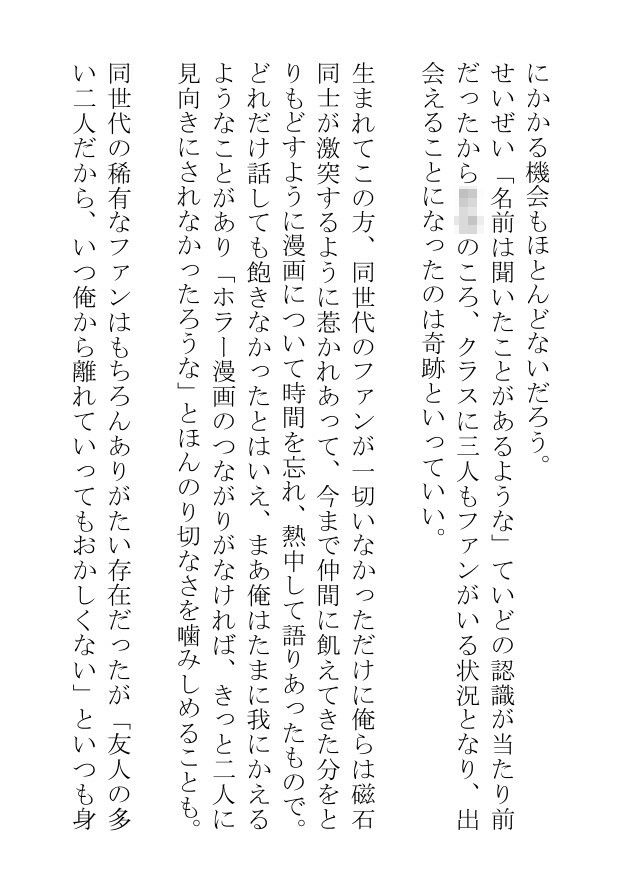 にかかる機会もほとんどないだろう。
せいぜい「名前は聞いたことがあるような」ていどの認識が当たり前
だったから のころ、クラスに三人もファンがいる状況となり、出
会えることになったのは奇跡といっていい。
生まれてこの方、同世代のファンが一切いなかっただけに俺らは磁石
同士が激突するように惹かれあって、今まで仲間に飢えてきた分をと
りもどすように漫画について時間を忘れ、熱中して語りあったもので。
どれだけ話しても飽きなかったとはいえ、まあ俺はたまに我にかえる
ようなことがあり「ホラー漫画のつながりがなければ、きっと二人に
見向きにされなかったろうな」とほんのり切なさを噛みしめることも。
同世代の稀有なファンはもちろんありがたい存在だったが「友人の多
い二人だから、いつ俺から離れていってもおかしくない」といつも身